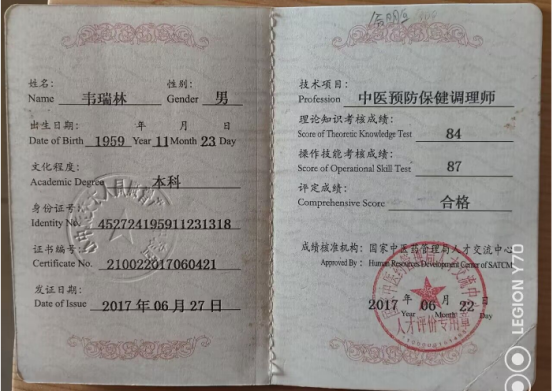 姓名：
Name 韦瑞林
性别：
Gender 男
出生日期： 年 月 日
Date of Birth 1959 Year 11 Month 23 Day
文化程度：
Academic Degree 本科
身份证号：
Identity No. 452724195911231318
证书编号：
Certificate No. 210022017060421
发证日期：
Date of Issue 2017 年 06 月 27 日
技术项目：
Profession 中医预防保健调理师
理论知识考核成绩：
Score of Theoretic Knowledge Test 84
操作技能考核成绩：
Score of Operational Skill Test 87
评定成绩：
Comprehensive Score 合格
成绩核准机构：国家中医药管理局人才交流中心
Approved By： Human Resources Development Center of SATCM
2017 年 06 月 22 日
Year Month Day
人才评价专用章
LEGION Y70